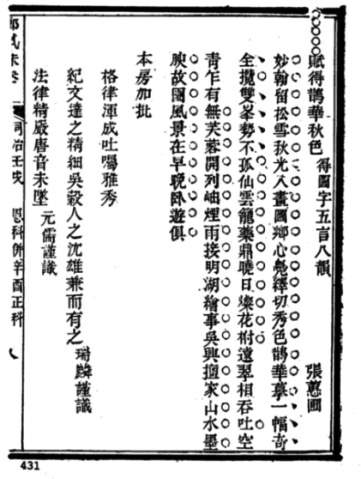 賦得鵲華秋色 得圖字五言八韻 張蔥圃
妙翰留松雪秋光入畫圖鄉心懸繹切秀色鵲華摹一幅奇
全攬雙峯勢不孤仙雲籠藥鼎曉日燦花柎遠翠相吞吐空
青乍有無芙蓉開列岫煙雨接明湖繪事吳興擅家山水墨
腴故園風景在早晚臥遊俱
本房加批
格律渾成吐囑雅秀
紀文達之精細吳穀人之沈雄兼而有之 瑞麟謹識
法律精嚴唐音未墜 元儒謹識
同治壬戌 恩科併辛酉正科 八
431